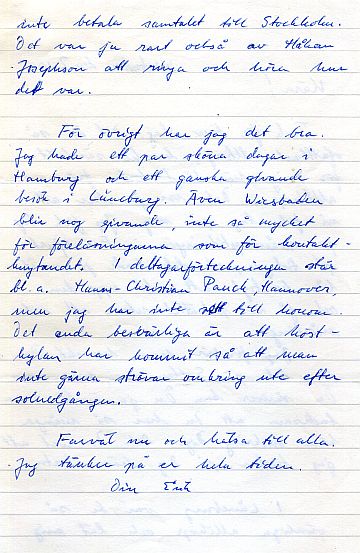 inte betala samtalet till Stockholm.
Det var ju rart också av Håkan
Josephson att ringa och höra hur
det var.
För övrigt har jag det bra.
Jag hade ett par sköna dagar i
Hamburg och ett ganska givande
besök i Lüneburg. Även Wiesbaden
blir nog givande, inte så mycket
för föreläsningarna som för kontakt-
knytandet. I deltagarförteckningen står
bl.a. Hanns-Christian Pauck, Hannover,
men jag har inte sett till honom.
Det enda besvärliga är att höst-
kylan har kommit så att man
inte gärna strövar omkring ute efter
solnedgången.
Farväl nu och hälsa till alla.
Jag tänker på er hela tiden.
Din Erik